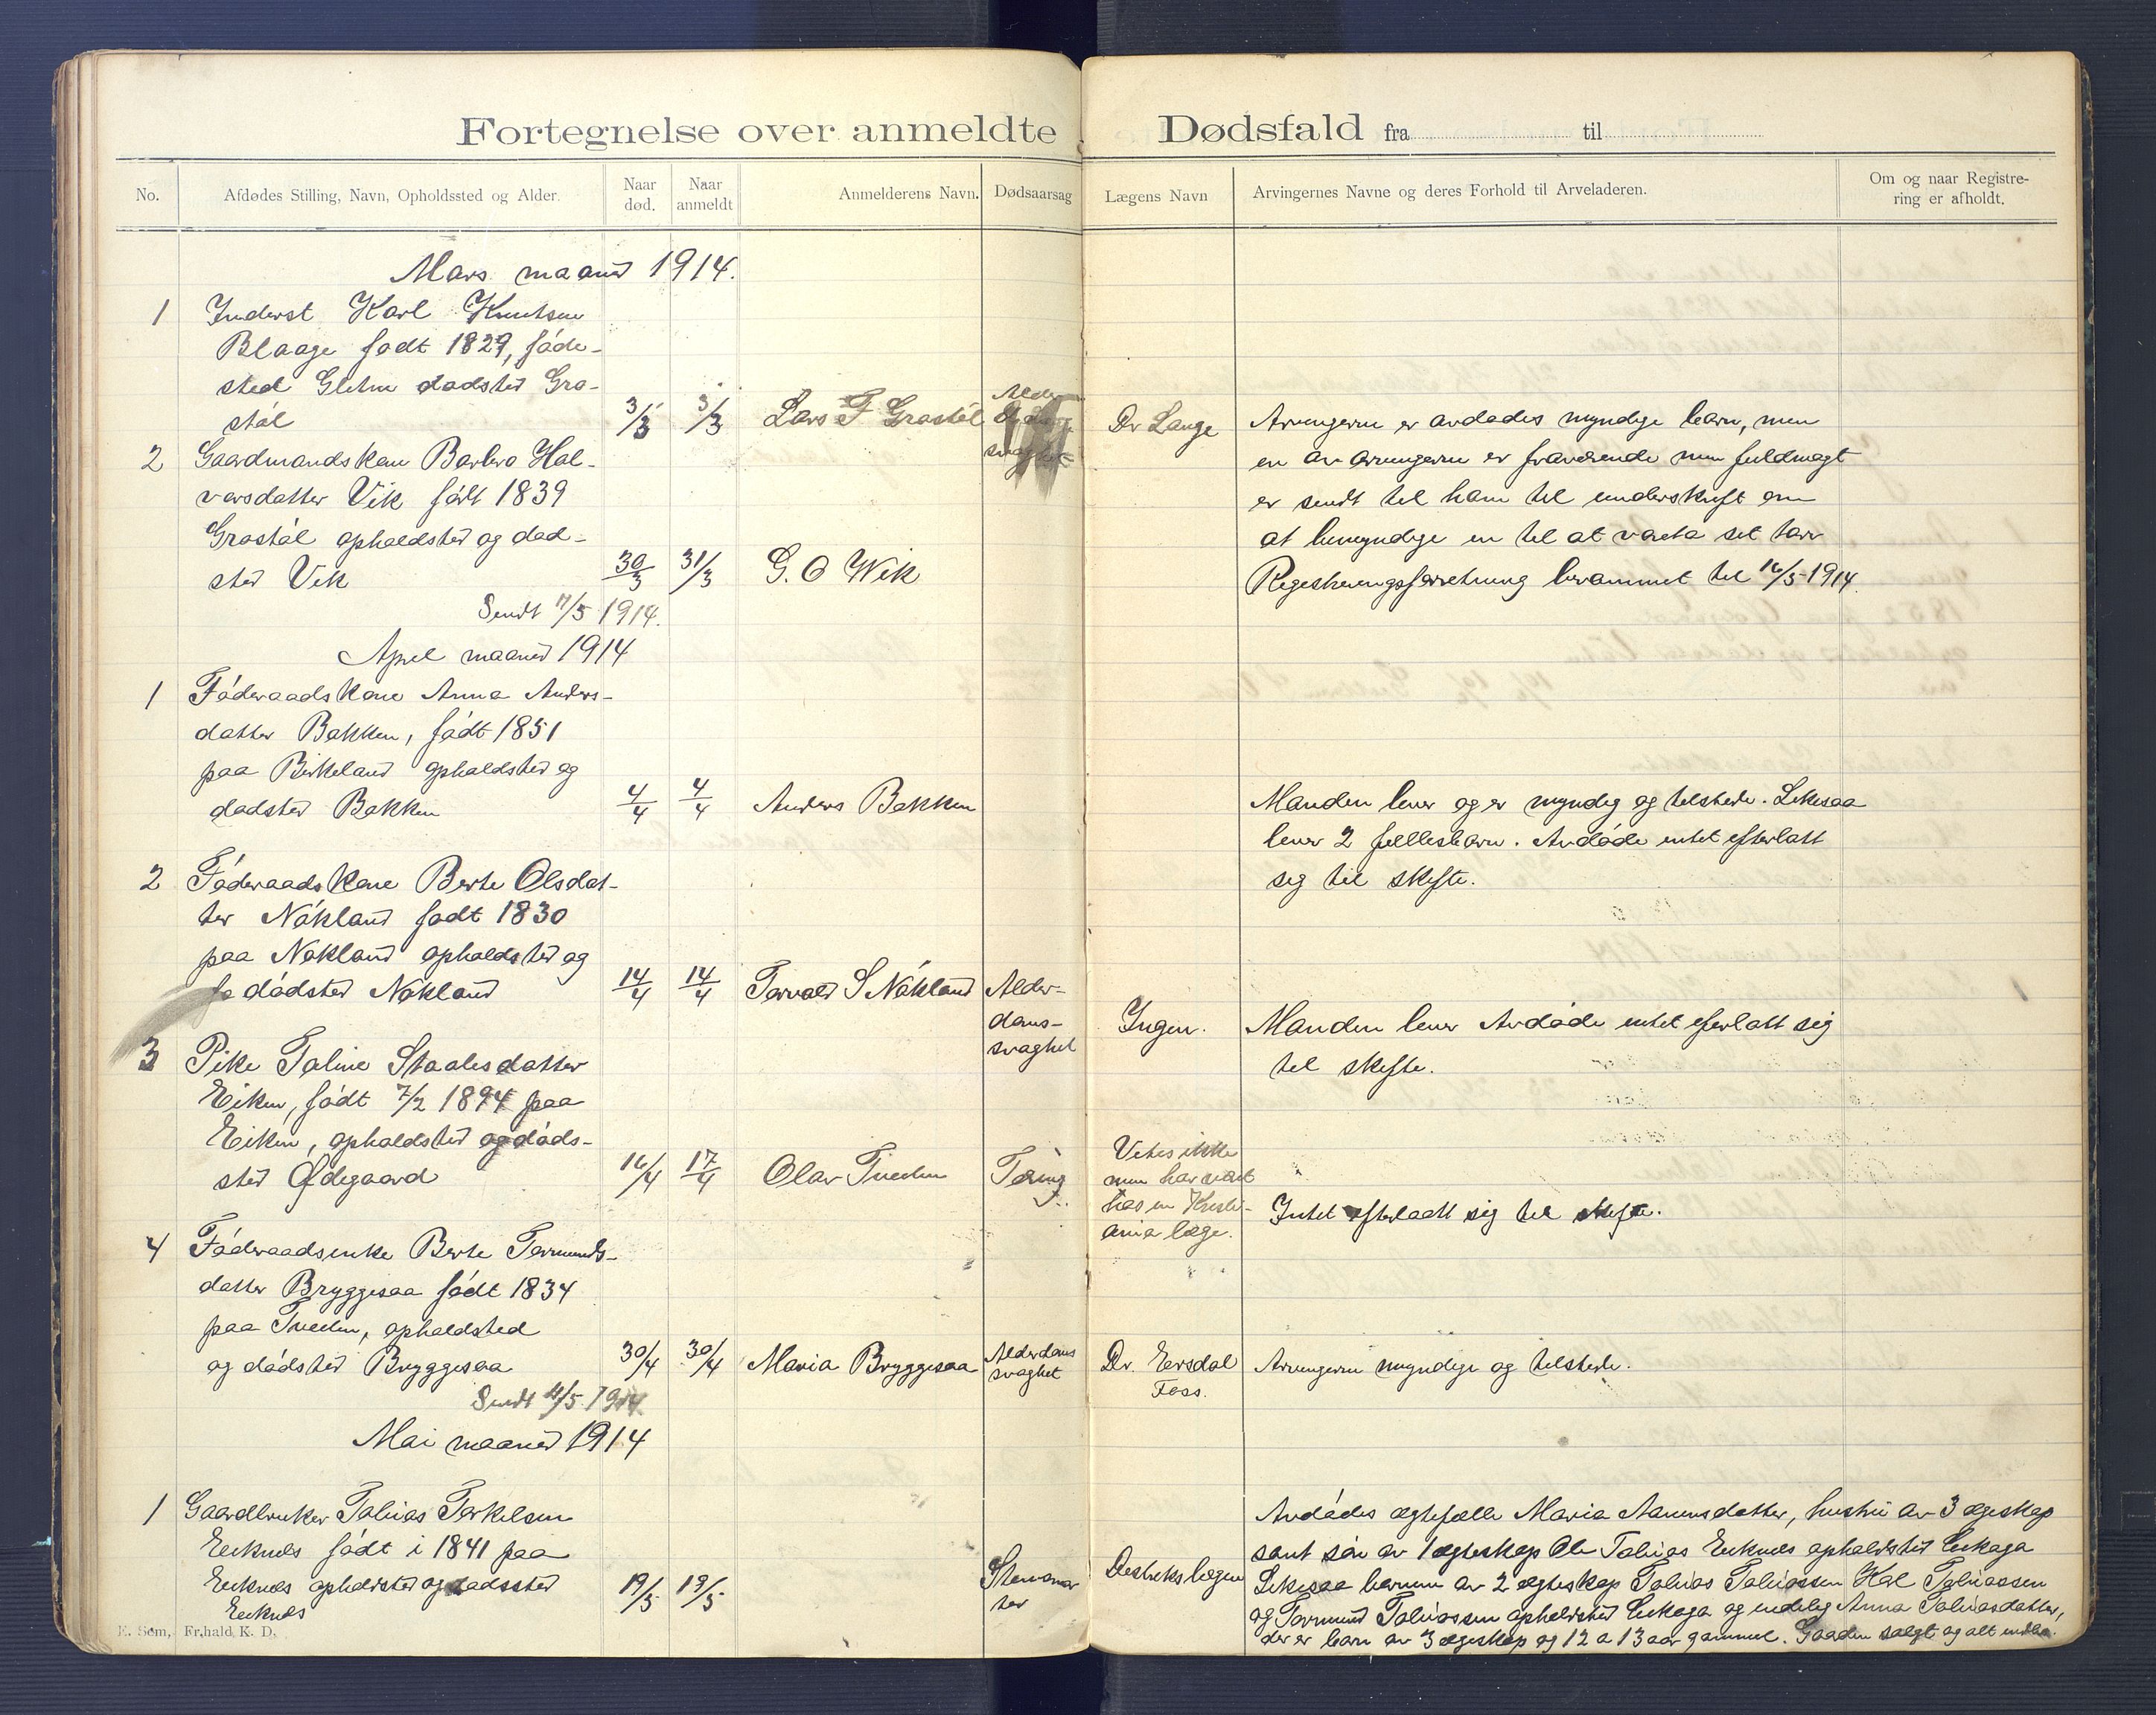 Fortegnelse over anmeldte Dødsfald fra til
No.
Afdødes Stilling, Navn, Opholdssted og Alder.
Naar død.
Naar anmeldt
Anmelderens Navn.
Dødsaarsag
Lægens Navn
Arvingernes Navne og deres Forhold til Arveladeren.
Om og naar Registre-
ring er afholdt.
Mars maaned 1914.
1 Inderst Karl Knutsen
Blaage født 1829, føde-
sted dødsted Gro-
støl 3/3 3/3 Lars T Grostøl
svaghet
Dr Lange
2 Gaardmandskone Barbro Hal-
vorsdatter Vik født 1839
Grostøl opholdsted og død-
sted Vik 30/3 31/3 G. O Wik
Arvingerne er avdødes myndige barn, men
en av arvingerne er fraværende men fuldmagt
er sendt til ham til underskrift om
at bemyndige en til at vareta set tarv
Registreringsforretning berammet til 16/5-1914.
Sendt 11/5 1914.
April maaned 1914
1 Føderaadskone Anna Anders-
datter Bakken, født 1851
paa Birkeland opholdsted og
dødsted Bakken 4/4 4/4 Anders Bakken
Manden lever og er myndig og tilstede. Likesaa
lever 2 fellesbarn. Avdøde intet efterlatt
sig til skifte.
2 Føderaadskone Berte Olsdat-
ter Nøkland født 1830
paa Nøkland opholdsted og
dødsted Nøkland 14/4 14/4 Torvald S Nøkland Alder-
doms-
svaghet
Ingen.
Manden lever Avdøde intet efterlatt sig
til skifte.
3 Pike Taline Staalesdatter
Eiken, født 7/2 1894 paa
Eiken, opholdsted og døds-
sted Ødegaard 16/4 17/4 Olav Tveden Tæring
Vites ikke
men har vært
hos en Kristi-
ania læge.
Intet efterlatt sig til skifte.
4 Føderaadsenke Berte Tormunds-
datter Bryggesaa født 1834
paa Tveden, opholdsted
og dødsted Bryggesaa 30/4 30/4 Maria Bryggesaa Alderdoms
svaghet
Dr. Eersdal
Foss.
Arvingerne myndige og tilstede.
Sendt 11/5 1914
Mai maaned 1914
1 Gaardbruker Tobias Torkelsen
Eieknes født i 1841 paa
Eieknes opholdsted og dødssted
Eieknes 19/5 19/5
Distriktslægen
Avdødes egtefælle Maria Aanensdatter, hustru av 3 egeskap
samt søn av 1 egteskap Ole Tobias Eieknes opholdsted
Likesaa barnene av 2 egteskap Tobias Tobiassen Tobiassen
og Tormund Tobiassen opholdsted og endelig Anna Tobiasdatter,
der er barn av 3 egeskap og 12 a 13 aar gammel. Gaarden solgt og alt
E. Sem, Fr.hald K. D.